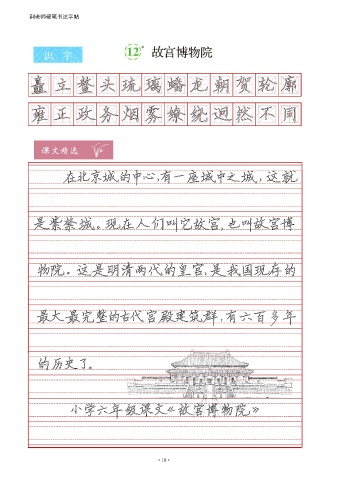 田老师硬笔书法字帖
识 字
12 故宫博物院
矗立鳌头琉璃蟠龙朝贺轮廓
雍正政务烟雾缭绕迥然不同
课文精选
在北京城的中心,有一座城中之城,这就
是紫禁城。现在人们叫它故宫,也叫故宫博
物院。这是明清两代的皇宫,是我国现存的
最大最完整的古代宫殿建筑群,有六百多年
的历史了。
小学六年级课文《故宫博物院》